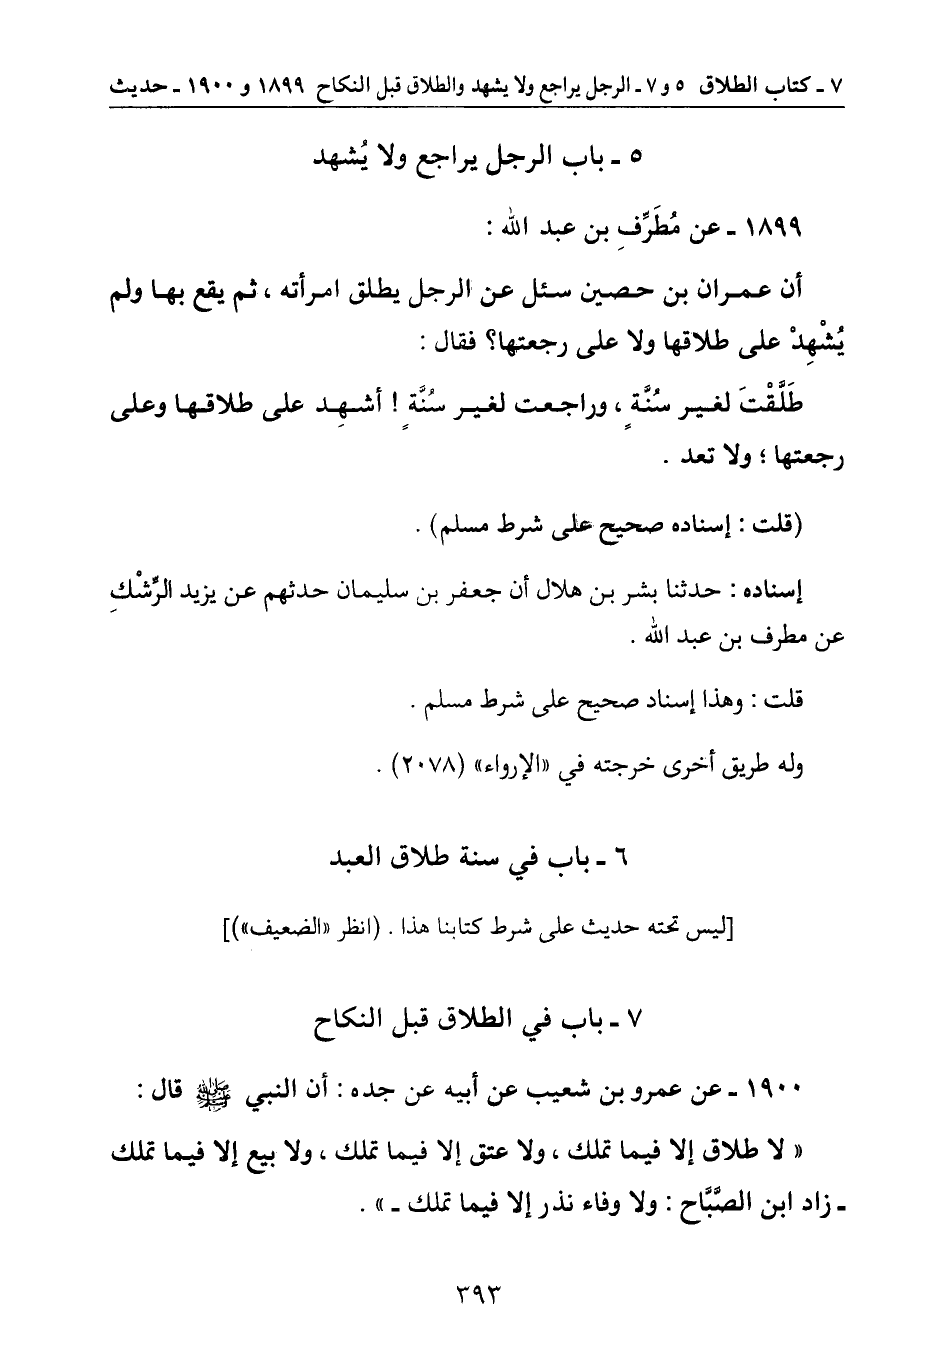 ٧ ـ كتاب الطلاق ٥ و ٧ ـ الرجل يراجع ولا يشهد والطلاق قبل النكاح ١٨٩٩ و ١٩٠٠ ـ حديث
٥ ـ باب الرجل يراجع ولا يُشهد
١٨٩٩ ـ عن مُطَرِّفِ بن عبد الله :
أن عمران بن حصين سئل عن الرجل يطلق امرأته ، ثم يقع بها ولم
يُشْهِدْ على طلاقها ولا على رجعتها؟ فقال :
طَلَّقْتَ لغير سُنَّةٍ ، وراجعت لغير سُنَّةٍ ! أشهِد على طلاقها وعلى
رجعتها ؛ ولا تعد .
(قلت : إسناده صحيح على شرط مسلم) .
إسناده : حدثنا بشر بن هلال أن جعفر بن سليمان حدثهم عن يزيد الرِّشْكِ
عن مطرف بن عبد الله .
قلت : وهذا إسناد صحيح على شرط مسلم .
وله طريق أخرى خرجته في «الإرواء» (٢٠٧٨) .
٦ ـ باب في سنة طلاق العبد
[ليس تحته حديث على شرط كتابنا هذا . (انظر «الضعيف»)]
٧ ـ باب في الطلاق قبل النكاح
١٩٠٠ ـ عن عمرو بن شعيب عن أبيه عن جده : أن النبي ﷺ قال :
« لا طلاق إلا فيما تملك ، ولا عتق إلا فيما تملك ، ولا بيع إلا فيما تملك
ـ زاد ابن الصَّبَّاح : ولا وفاء نذر إلا فيما تملك ـ » .
٣٩٣